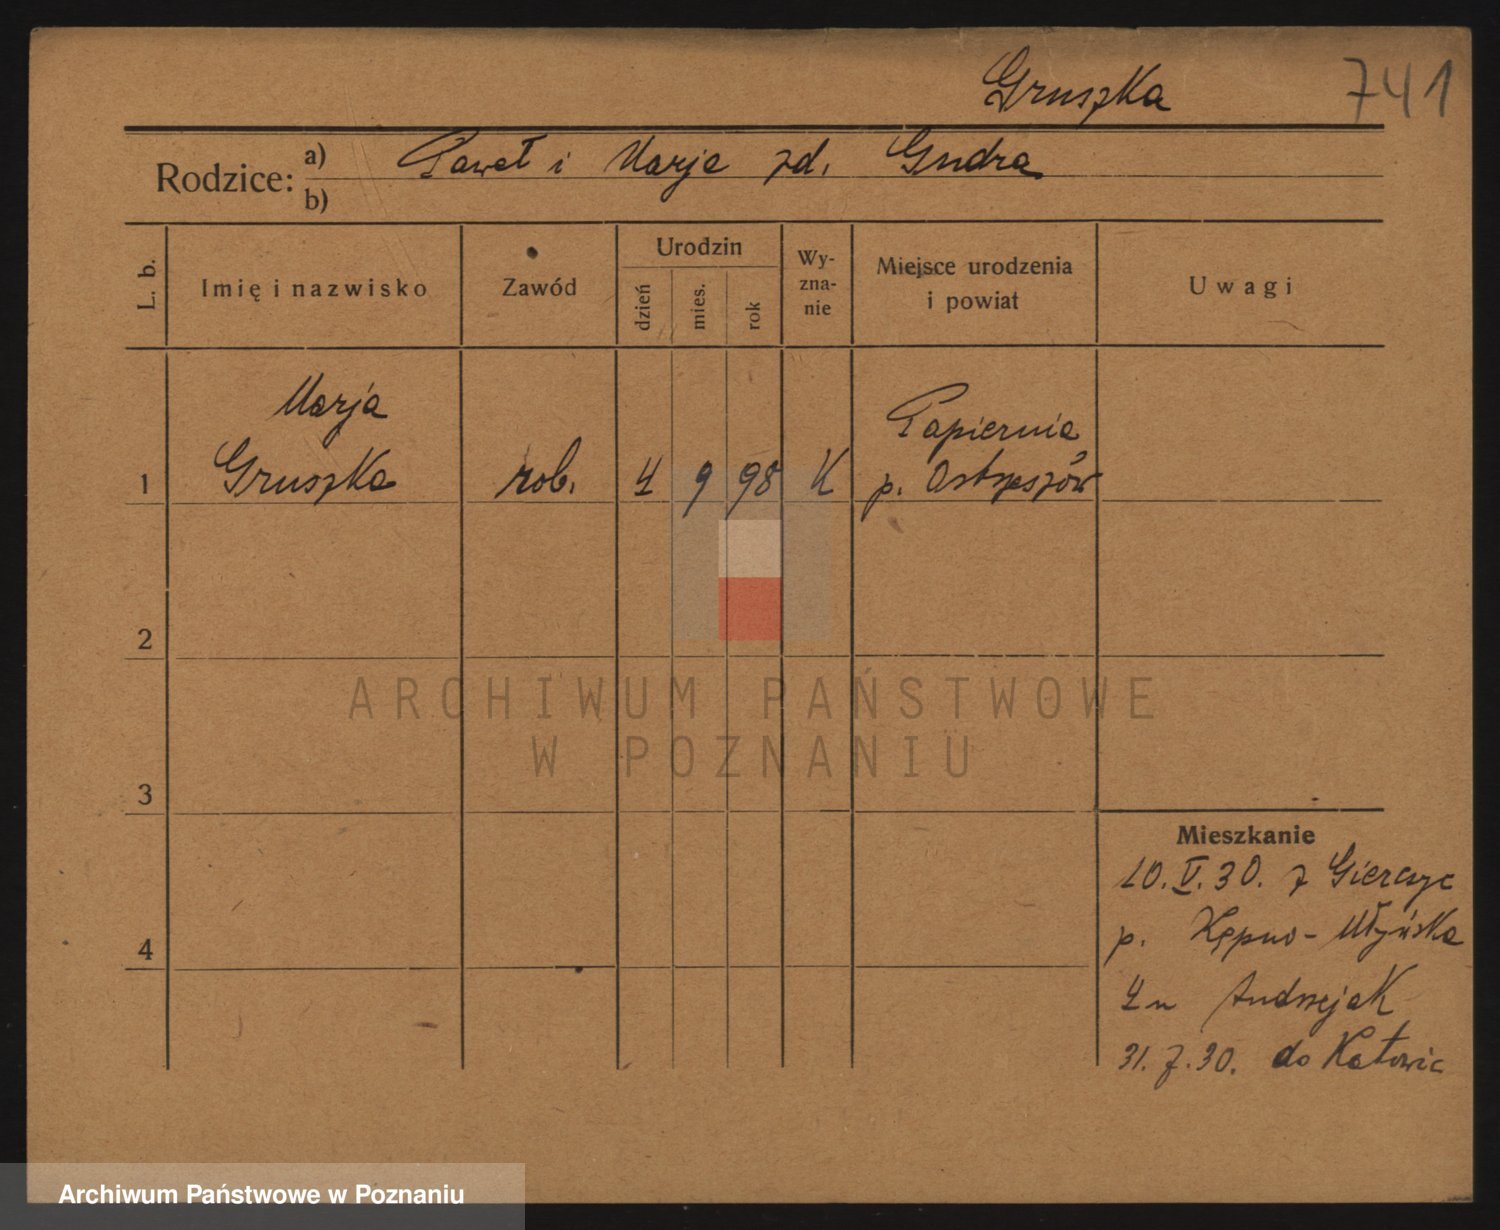 Gruszka 741
Rodzice: a) Paweł i Marja zd. Gudra
b)
L. b.
Imię i nazwisko
Zawód
Urodzin
dzień
mies.
rok
Wy-
zna-
nie
Miejsce urodzenia
i powiat
Uwagi
Marja
Gruszka
1
rob.
4
9
98
K
Papiernia
p. Ostrzeszów
2
3
4
Mieszkanie
10. V. 30. z Gierczyc
p. Kępno - Młyńska
4 u Andrzejak
31. 7. 30. do Katowic
ARCHIWUM PAŃSTWOWE
W POZNANIU
Archiwum Państwowe w Poznaniu